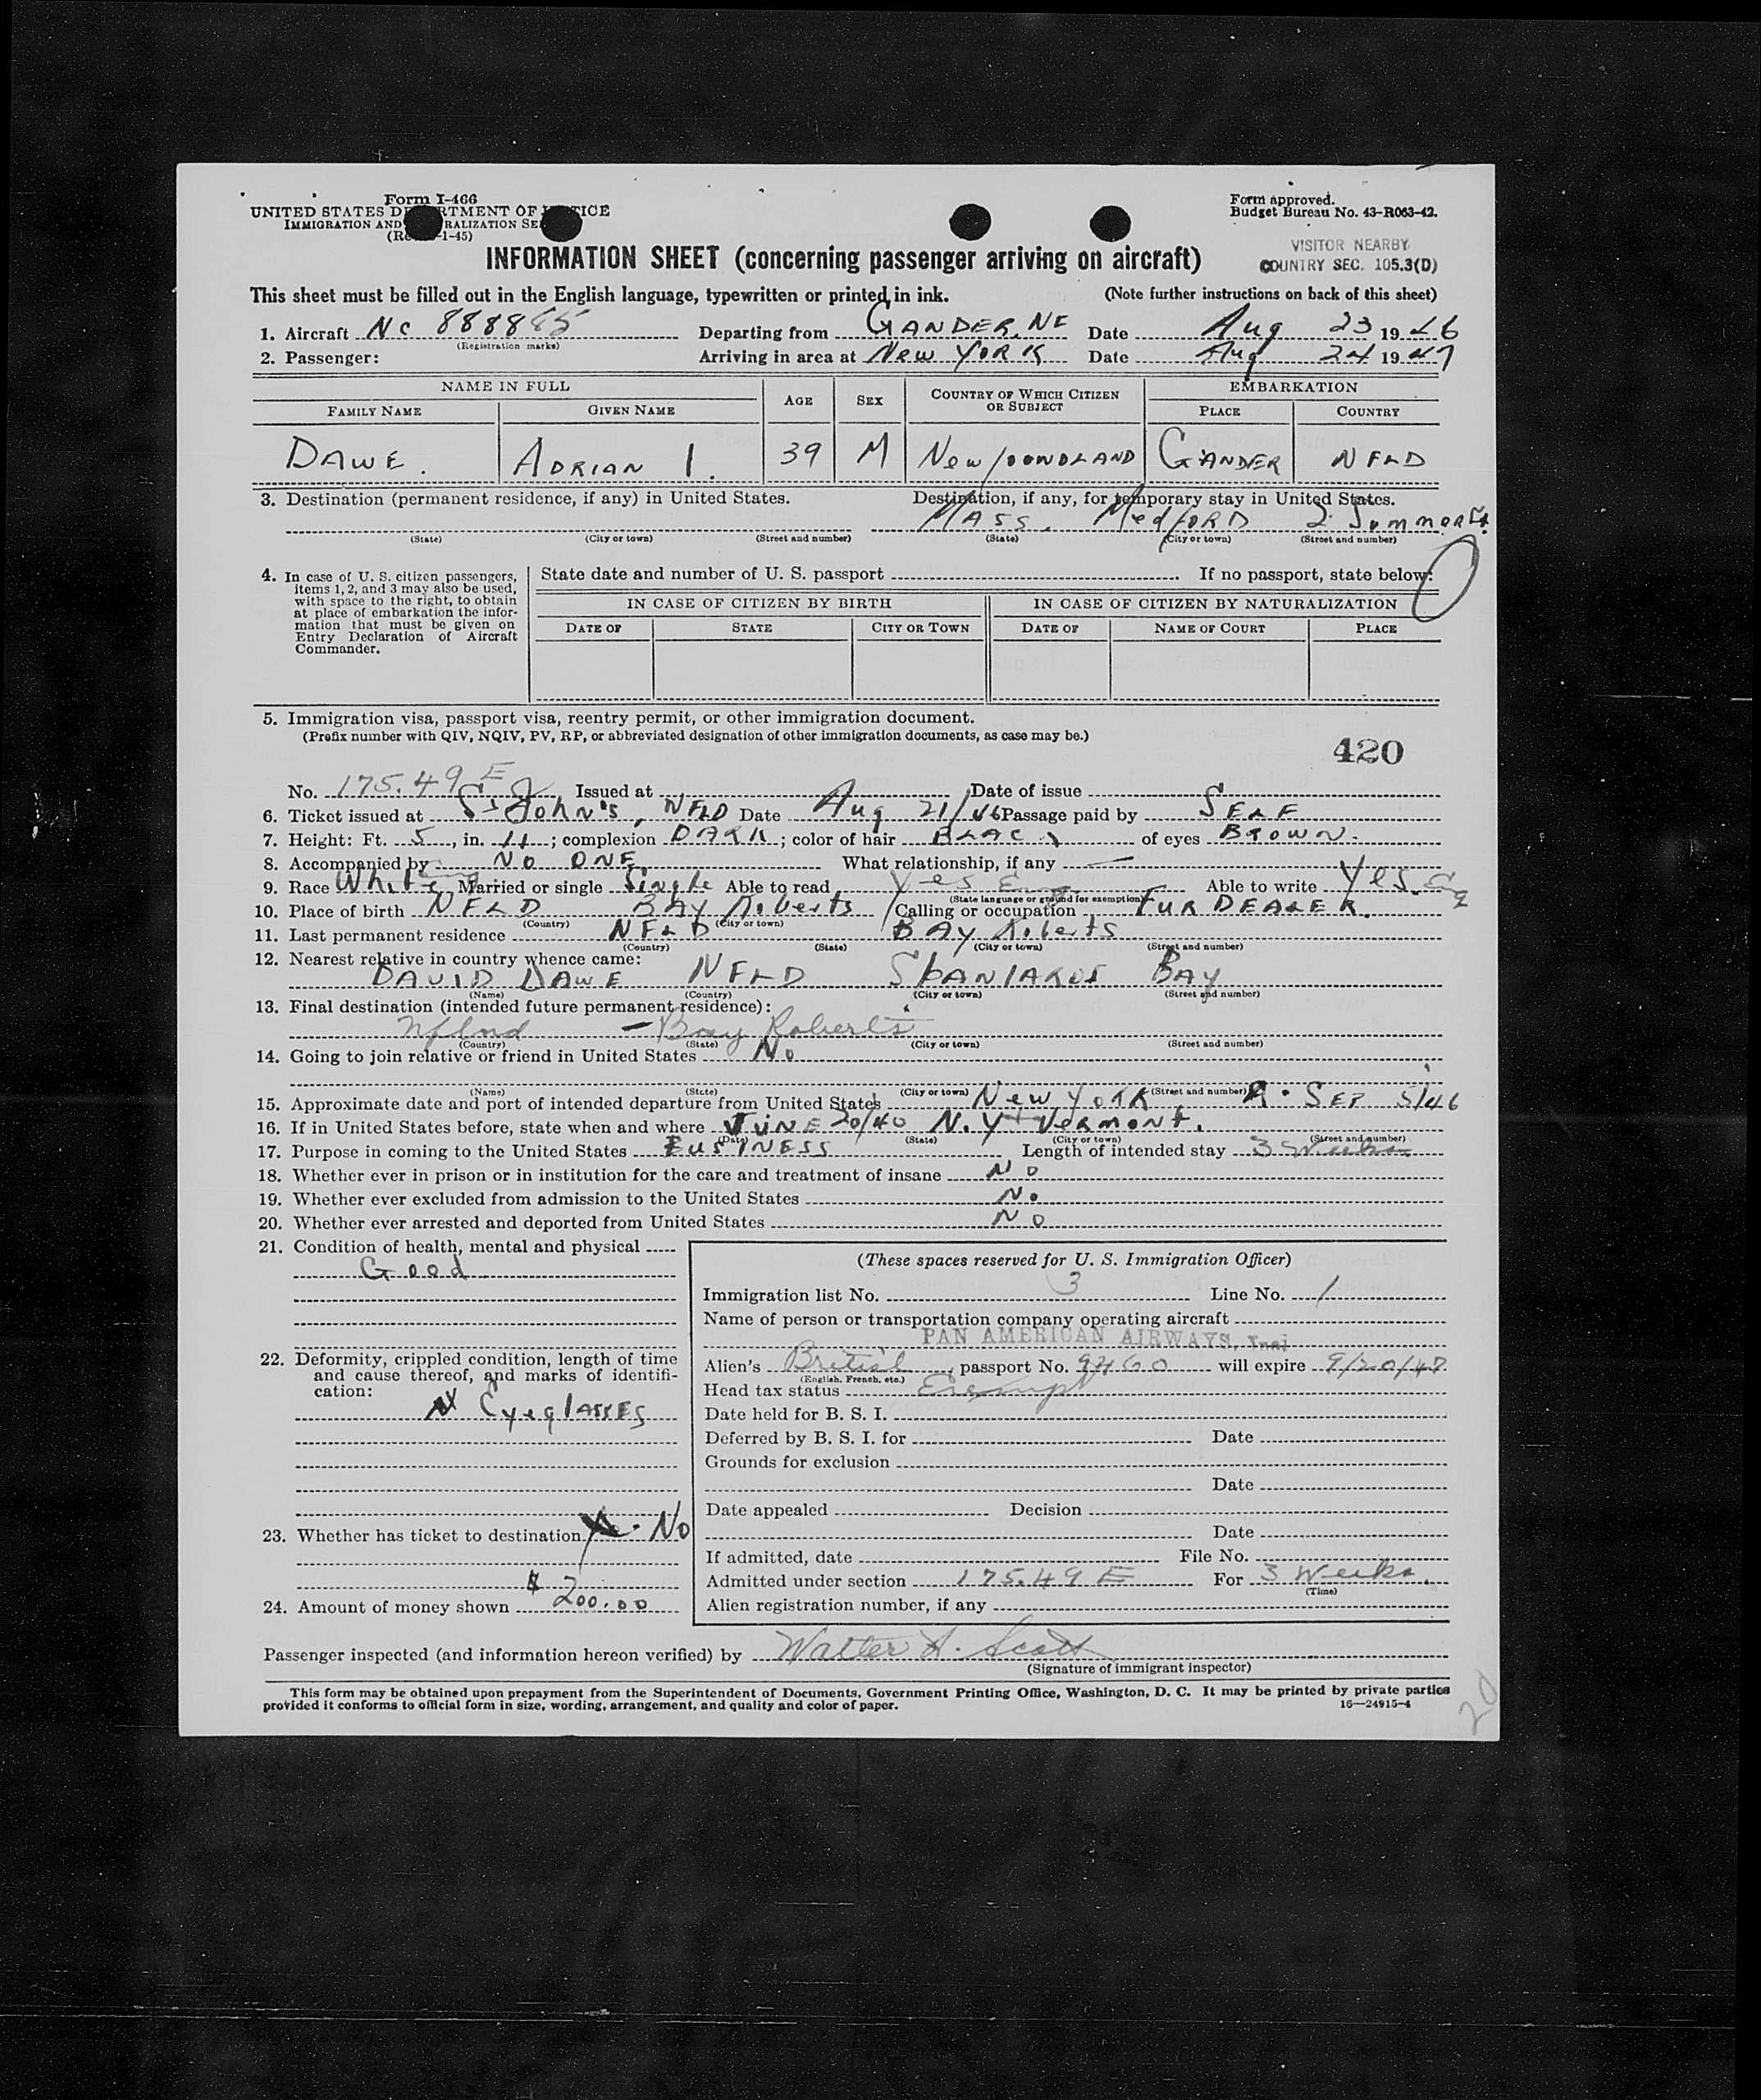 Form I-466
UNITED STATES DEPARTMENT OF JUSTICE
IMMIGRATION AND NATURALIZATION SE
(Re -1-45)
Form approved.
Budget Bureau No. 43-R063-42.
VISITOR NEARBY
COUNTRY SEC. 105.3(D)
INFORMATION SHEET (concerning passenger arriving on aircraft)
This sheet must be filled out in the English language, typewritten or printed in ink. (Note further instructions on back of this sheet)
1. Aircraft NC Departing from GANDER, NF Date Aug 23 1946
(Registration marks)
2. Passenger: Arriving in area at New YORK Date Aug 24 1947
NAME IN FULL AGE SEX COUNTRY OF WHICH CITIZEN OR SUBJECT EMBARKATION
FAMILY NAME GIVEN NAME PLACE COUNTRY
DAWE. ADRIAN I. 39 M NewfOUNDLAND GANDER NFLD
3. Destination (permanent residence, if any) in United States. Destination, if any, for temporary stay in United States.
MASS. MedfORD 2
(State) (City or town) (Street and number) (State) (City or town) (Street and number)
4. In case of U. S. citizen passengers, items 1, 2, and 3 may also be used, with space to the right, to obtain at place of embarkation the information that must be given on Entry Declaration of Aircraft Commander.
State date and number of U. S. passport . If no passport, state below:
IN CASE OF CITIZEN BY BIRTH IN CASE OF CITIZEN BY NATURALIZATION
DATE OF STATE CITY OR TOWN DATE OF NAME OF COURT PLACE
5. Immigration visa, passport visa, reentry permit, or other immigration document.
(Prefix number with QIV, NQIV, PV, RP, or abbreviated designation of other immigration documents, as case may be.)
420
No. 175.49 E Issued at Date of issue
6. Ticket issued at St John's, NFLD Date Aug 21/46 Passage paid by SELF
7. Height: Ft. 5, in. 11; complexion DARK; color of hair BLAC of eyes BROWN.
8. Accompanied by NO ONE What relationship, if any —
9. Race White Married or single Single Able to read Yes Eng Able to write Yes. Eng
(State language or ground for exemption)
10. Place of birth NFLD BAY Roberts Calling or occupation FUR DEALER.
(Country) (City or town)
11. Last permanent residence NFLD BAY Roberts
(Country) (State) (City or town) (Street and number)
12. Nearest relative in country whence came:
DAVID DAWE NFLD SPANIARDS BAY
(Name) (Country) (City or town) (Street and number)
13. Final destination (intended future permanent residence):
Nfland — Bay Roberts
(Country) (State) (City or town) (Street and number)
14. Going to join relative or friend in United States No
(Name) (State) (City or town) (Street and number)
15. Approximate date and port of intended departure from United States New YORK SEP 5/46
16. If in United States before, state when and where JUNE 20/40 N.Y + Vermont.
(Date) (State) (City or town) (Street and number)
17. Purpose in coming to the United States BUSINESS Length of intended stay 3 Weeks
18. Whether ever in prison or in institution for the care and treatment of insane No
19. Whether ever excluded from admission to the United States No
20. Whether ever arrested and deported from United States No
21. Condition of health, mental and physical
Good
22. Deformity, crippled condition, length of time and cause thereof, and marks of identification:
EyeglASSES
23. Whether has ticket to destination No
24. Amount of money shown $200.00
(These spaces reserved for U. S. Immigration Officer)
Immigration list No. 3 Line No. 1
Name of person or transportation company operating aircraft
PAN AMERICAN AIRWAYS, Inc.
Alien's British, passport No. 9460 will expire 9/20/47
(English, French, etc.)
Head tax status Exempt
Date held for B. S. I.
Deferred by B. S. I. for Date
Grounds for exclusion
Date
Date appealed Decision
Date
If admitted, date File No.
Admitted under section 175.49 E For 3 Weeks.
(Time)
Alien registration number, if any
Passenger inspected (and information hereon verified) by Walter A. Scott
(Signature of immigrant inspector)
This form may be obtained upon prepayment from the Superintendent of Documents, Government Printing Office, Washington, D. C. It may be printed by private parties
provided it conforms to official form in size, wording, arrangement, and quality and color of paper. 16—24915-4
20